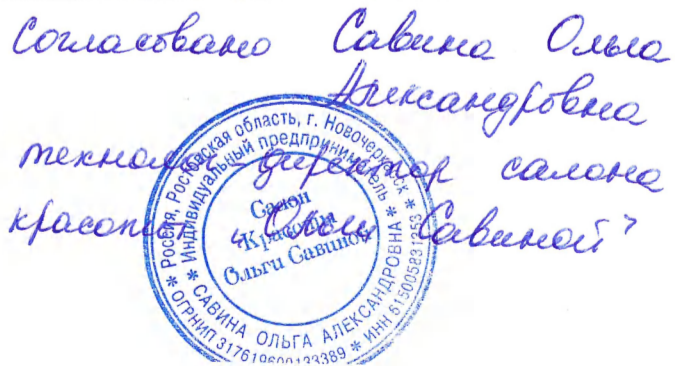 Согласовано Савина Ольга
Александровна
технолог-директор салона
красоты „Ольги Савиной"
* Россия, Ростовская область, г. Новочеркасск *
* Индивидуальный предприниматель *
* САВИНА ОЛЬГА АЛЕКСАНДРОВНА *
* ОГРНИП 317619600133389 * ИНН 615005831253
Салон
Красоты
Ольги Савиной